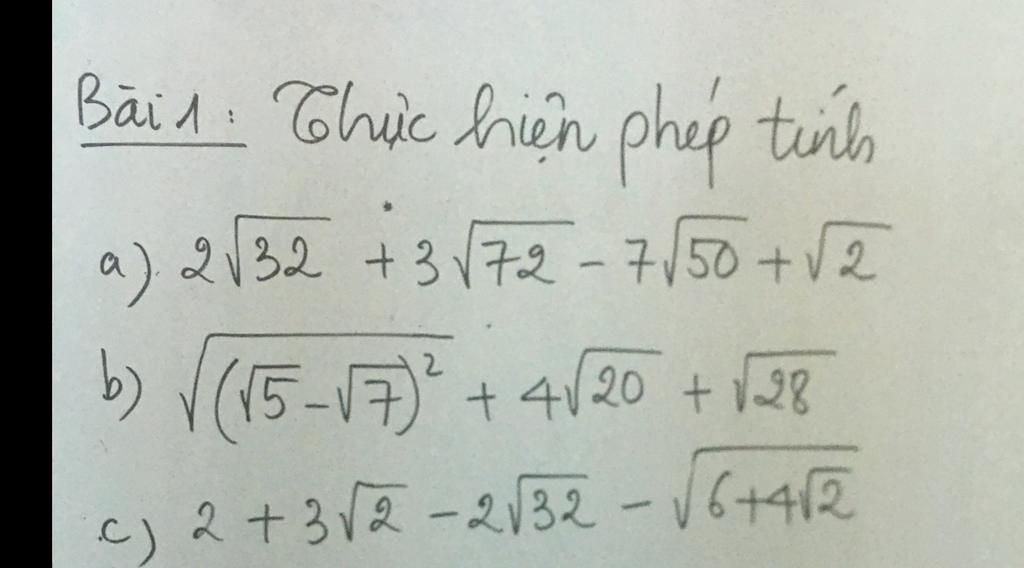 Bài 1: Thực hiện phép tính
a) 2√32 + 3√72 - 7√50 + √2
b) √((√5-√7)²) + 4√20 + √28
c) 2 + 3√2 - 2√32 - √(6+4√2)